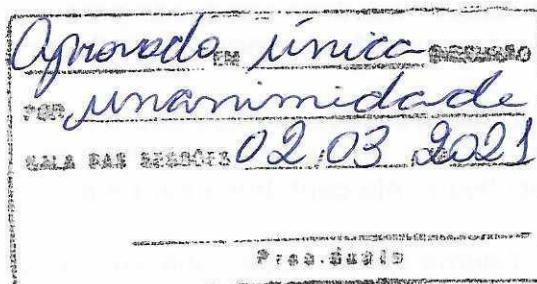 Aprovado EM única DISCUSSÃO
POR unanimidade
SALA DAS SESSÕES 02 /03 /2021